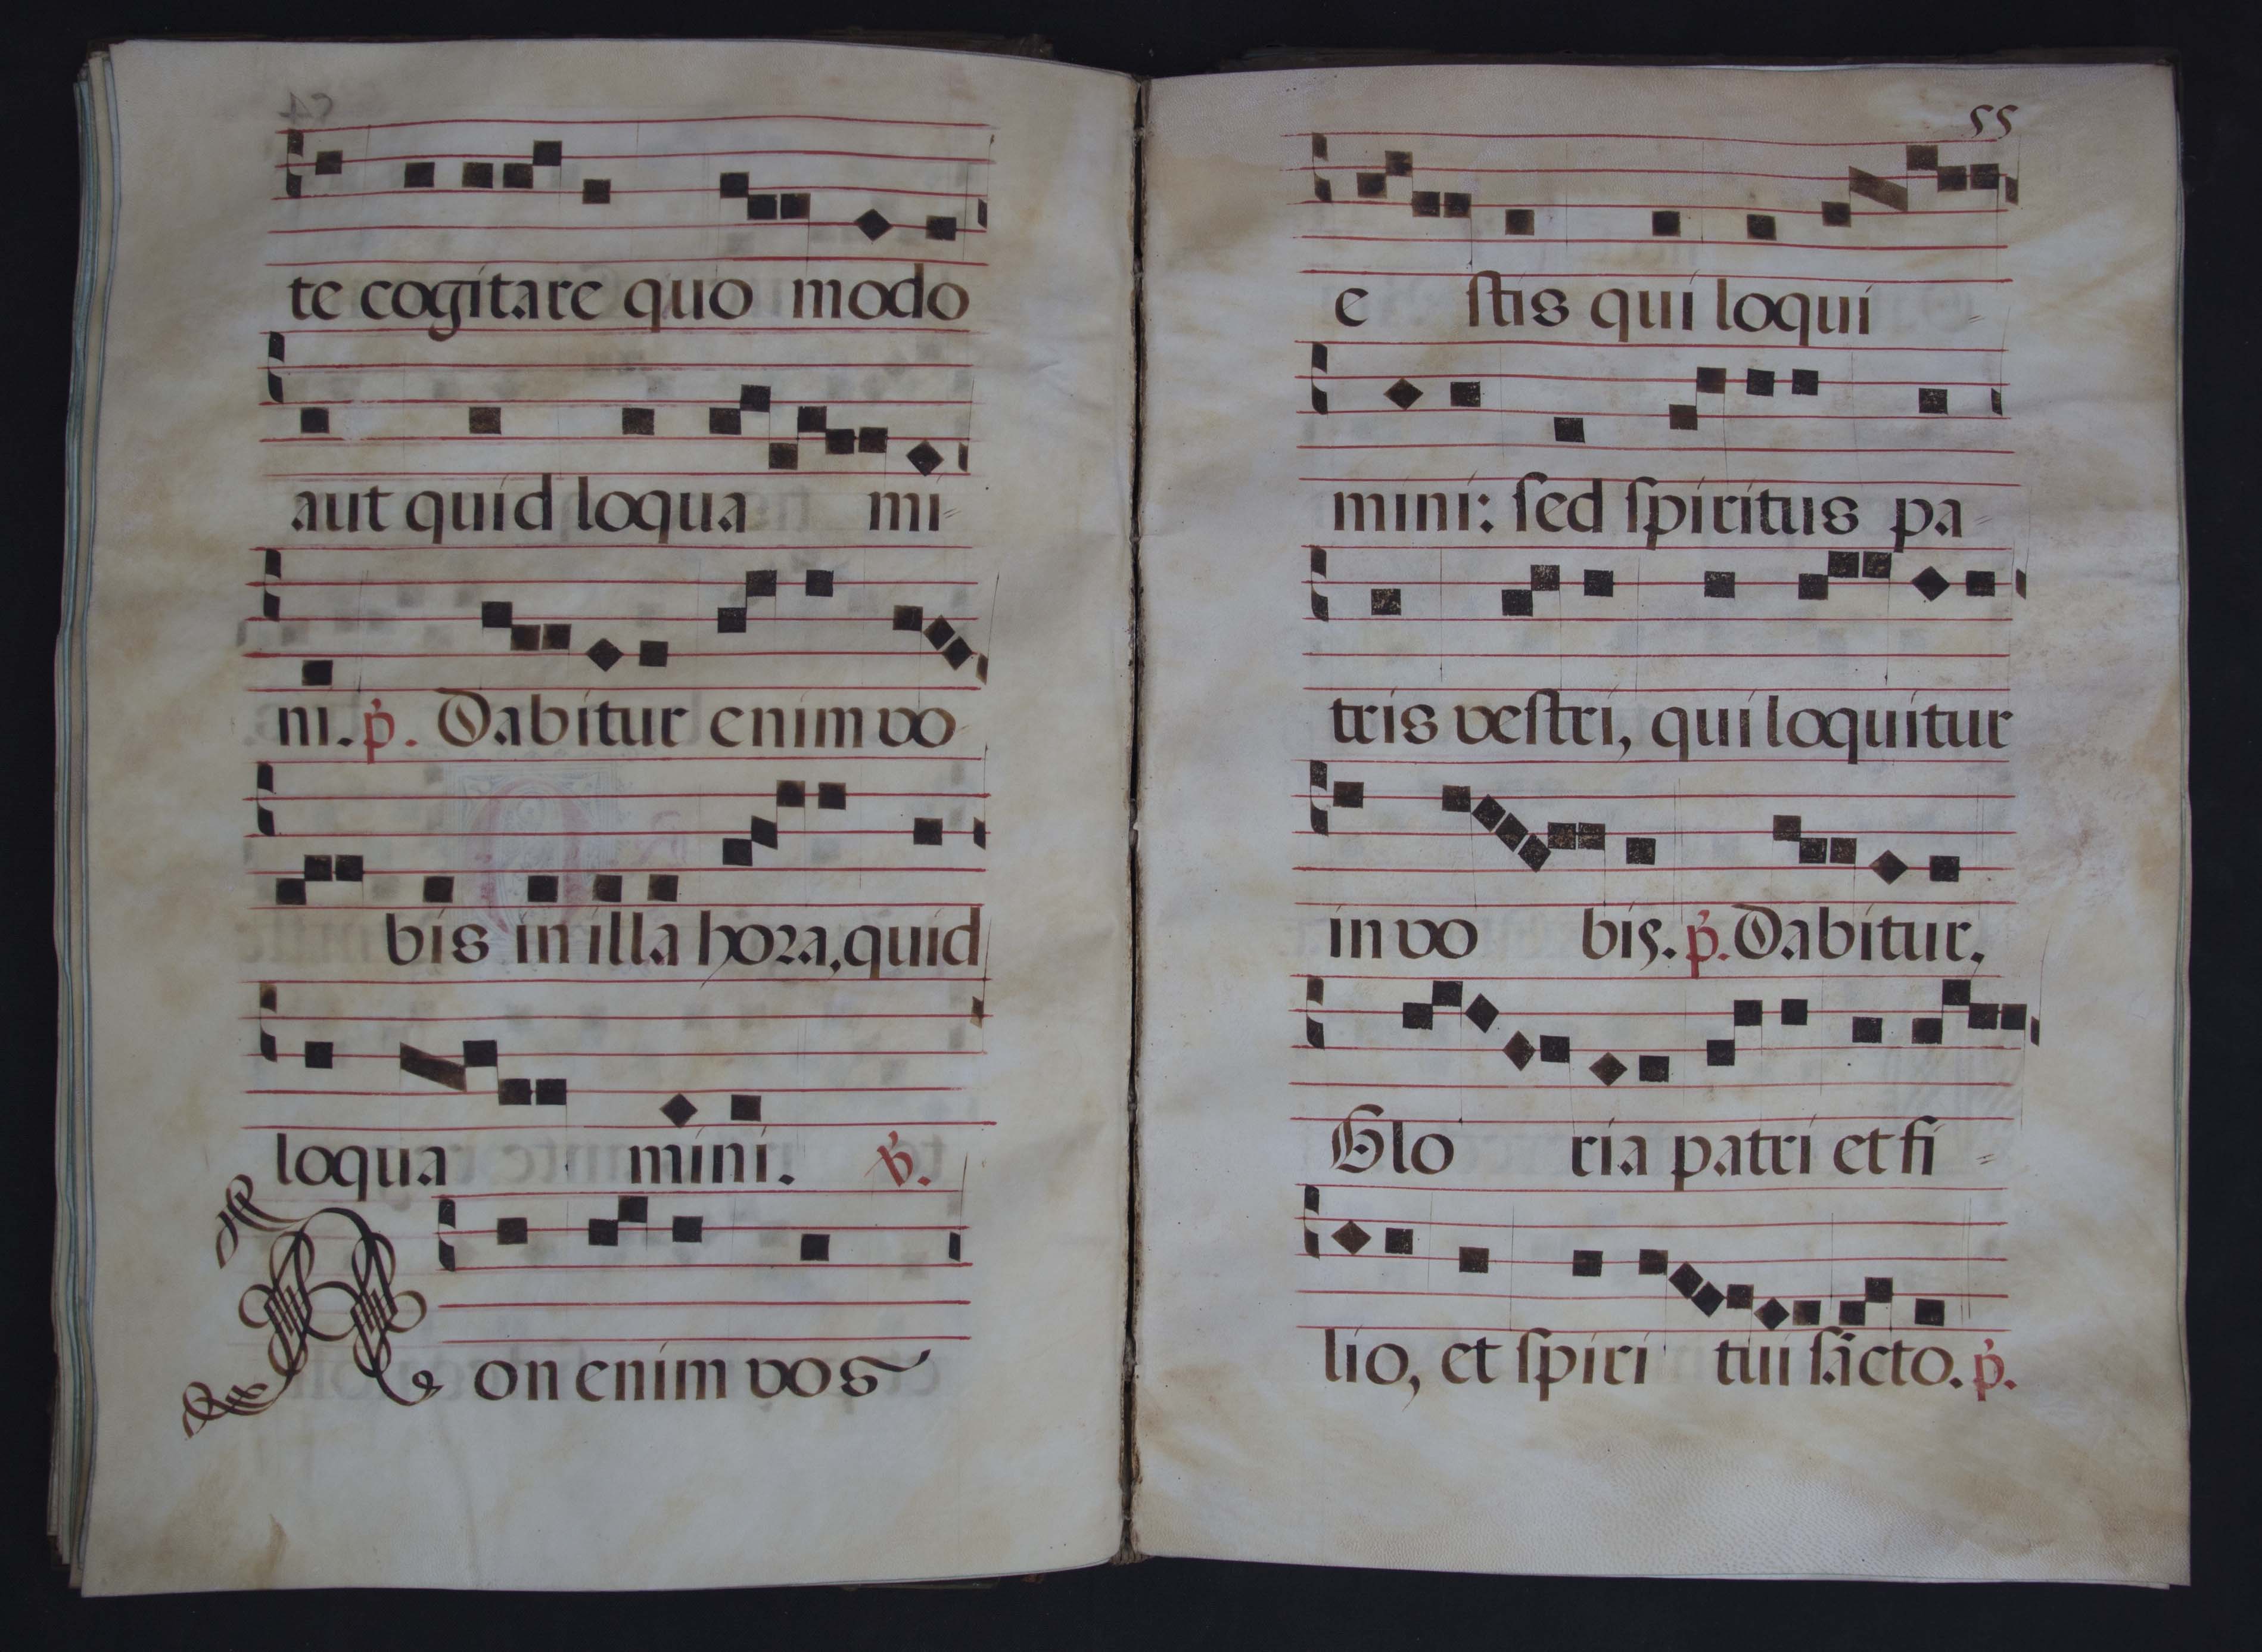 te cogitare quo modo
aut quid loqua mi-
ni. p. Dabitur enim vo
bis in illa hora, quid
loqua mini. v.
Non enim vos
55
e stis qui loqui-
mini: sed spiritus pa-
tris vestri, qui loquitur
in vo bis. p. Dabitur.
Glo ria patri et fi-
lio, et spiri tui sācto. p.